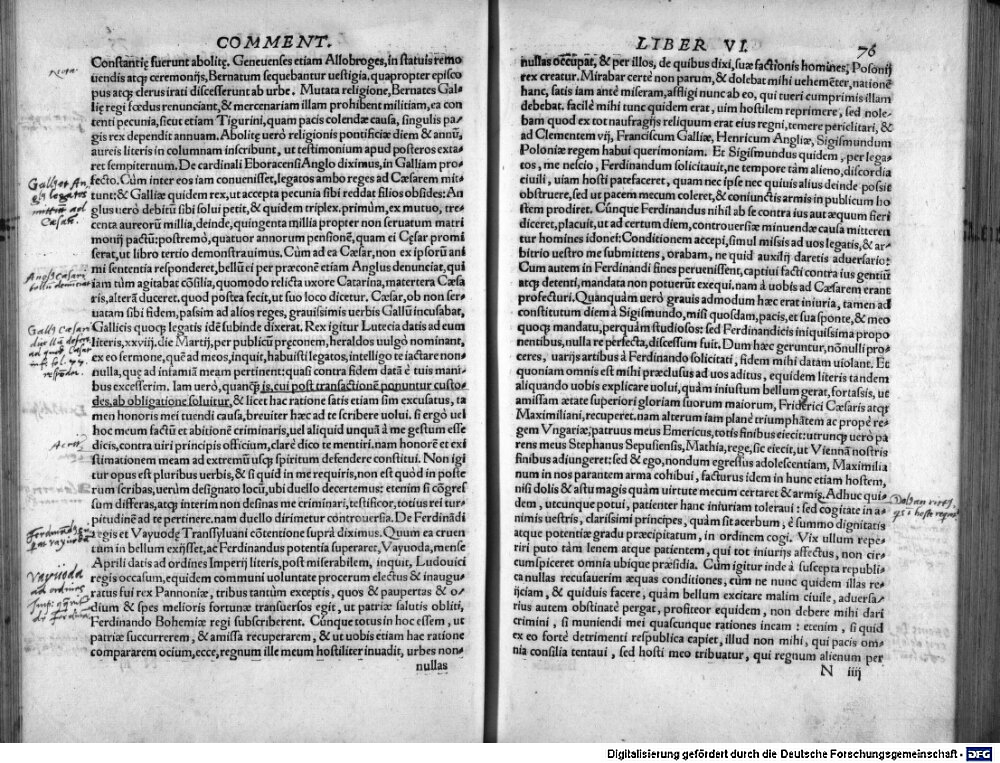 COMMENT.
Constantię fuerunt abolitę. Geneuenses etiam Allobroges, in statuis remo
uendis atq; ceremonijs, Bernatum sequebantur uestigia, quapropter episco
pus atq; clerus irati discesserunt ab urbe. Mutata religione, Bernates Gal-
lię regi fœdus renunciant, & mercenariam illam prohibent militiam, ea con
tenti pecunia, sicut etiam Tigurini, quam pacis colendæ causa, singulis pa-
gis rex dependit annuam. Abolitę uerò religionis pontificiæ diem & annũ,
aureis literis in columnam inscribunt, ut testimonium apud posteros exta-
ret sempiternum. De cardinali Eboracensi Anglo diximus, in Galliam pro-
fecto. Cùm inter eos iam conuenisset, legatos ambo reges ad Cæsarem mit-
tunt: & Galliæ quidem rex, ut accepta pecunia sibi reddat filios obsides: An
glus uerò debitũ sibi solui petit, & quidem triplex. primùm, ex mutuo, tre-
centa aureorũ millia, deinde, quingenta millia propter non seruatum matri
monij pactũ: postremò, quatuor annorum pensionẽ, quam ei Cęsar promi
serat, ut libro tertio demonstrauimus. Cùm ad ea Cæsar, non ex ipsorũ ani
mi sententia responderet, bellũ ei per præconẽ etiam Anglus denunciat, qui
iam tũm agitabat cõsilia, quomodo relicta uxore Catarina, matertera Cæsa
ris, alterã duceret. quod postea fecit, ut suo loco dicetur. Cæsar, ob non ser-
uatam sibi fidem, passim ad alios reges, grauissimis uerbis Gallũ incusabat,
Gallicis quoq; legatis idẽ subinde dixerat. Rex igitur Lutecia datis ad eum
literis, xxviij. die Martij, per publicũ pręconem, heraldos uulgò nominant,
ex eo sermone, què ad meos, inquit, habuisti legatos, intelligo te iactare non-
nulla, quę ad infamiã meam pertinent: quasi contra fidem datã è tuis mani-
bus excesserim. Iam uerò, quancq; is, cui post transactionẽ ponuntur custo-
des, ab obligatione soluitur, & licet hac ratione satis etiam sim excusatus, ta
men honoris mei tuendi causa, breuiter hæc ad te scribere uolui. si ergò uel
hoc meum factũ et abitionẽ criminaris, uel aliquid unquã à me gestum esse
dicis, contra uiri principis officium, clarè dico te mentiri. nam honorẽ et exi
stimationem meam ad extremũ usq; spiritum defendere constitui. Non igi
tur opus est pluribus uerbis, & si quid in me requiris, non est quòd in poste
rum scribas, uerùm designato locũ, ubi duello decertemus: etenim si cõgres
sum differas, atq; interim non desinas me criminari, testificor, totius rei tur-
pitudinẽ ad te pertinere. nam duello dirimetur controuersia. De Ferdinãdi
regis et Vayuodę Transsyluani cõtentione suprà diximus. Quum ea cruen
tum in bellum exijsset, ac Ferdinandus potentia superaret, Vayuoda, mense
Aprili datis ad ordines Imperij literis, post miserabilem, inquit, Ludouici
regis occasum, equidem communi uoluntate procerum electus & inaugu-
ratus fui rex Pannoniæ, tribus tantùm exceptis, quos & paupertas & o-
dium & spes melioris fortunæ transuersos egit, ut patriæ salutis obliti,
Ferdinando Bohemiæ regi subscriberent. Cũnque totus in hoc essem, ut
patriæ succurrerem, & amissa recuperarem, & ut uobis etiam hac ratione
compararem ocium, ecce, regnum ille meum hostiliter inuadit, urbes non-
nullas
Nota
Galli et An
gli legatos
mittũt ad
Cæsarẽ.
Ferdinãdi
et Vayuodæ
Vayuoda
ad ordines
LIBER VI.
76
nullas occupat, & per illos, de quibus dixi, suæ factionis homines, Posonij
rex creatur. Mirabar certè non parum, & dolebat mihi uehemẽter, nationẽ
hanc, satis iam antè miseram, affligi nunc ab eo, qui tueri cumprimis illam
debebat. facilè mihi tunc quidem erat, uim hostilem reprimere, sed nole-
bam quod ex tot naufragijs reliquum erat eius regni, temere periclitari, &
ad Clementem vij, Franciscum Galliæ, Henricum Angliæ, Sigismundum
Poloniæ regem habui querimoniam. Et Sigismundus quidem, per lega-
tos, me nescio, Ferdinandum solicitauit, ne tempore tàm alieno, discordia
ciuili, uiam hosti patefaceret, quam nec ipse nec quiuis alius deinde possit
obstruere, sed ut pacem mecum coleret, & coniunctis armis in publicum ho
stem prodiret. Cũnque Ferdinandus nihil ab se contra ius aut æquum fieri
diceret, placuit, ut ad certum diem, controuersiæ minuendæ causa mitteren
tur homines idonei: Conditionem accepi, simul missis ad uos legatis, & ar-
bitrio uestro me submittens, orabam, ne quid auxilij daretis aduersario:
Cùm autem in Ferdinandi fines peruenissent, captiui facti contra ius gentiũ
atq; detenti, mandata non potuerũt exequi. nam à uobis ad Cæsarem erant
profecturi. Quanquàm uerò grauis admodum hæc erat iniuria, tamen ad
constitutum diem à Sigismundo, misi quosdam, pacis, et sua sponte, & meo
quoq; mandatu, perquàm studiosos: sed Ferdinandicis iniquissima propo
nentibus, nulla re perfecta, discessum fuit. Dum hæc geruntur, nõnulli pro-
ceres, uarijs artibus à Ferdinando solicitati, fidem mihi datam uiolant. Et
quoniam omnis est mihi præclusus ad uos aditus, equidem literis tandem
aliquando uobis explicare uolui, quàm iniustum bellum gerat, fortassis, ut
amissam ætate superiori gloriam suorum maiorum, Friderici Cæsaris atq;
Maximiliani, recuperet. nam alterum iam planè triumphãtem ac propè re-
gem Vngariæ, patruus meus Emericus, totis finibus eiecit: utrunq; uerò pa
rens meus Stephanus Sepusiensis, Mathia, rege, sic eiecit, ut Viennã nostris
finibus adiungeret: sed & ego, nondum egressus adolescentiam, Maximilia
num in nos parantem arma cohibui, facturus idem in hunc etiam hostem,
nisi dolis & astu magis quàm uirtute mecum certaret & armis. Adhuc qui-
dem, utcunque potui, patienter hanc iniuriam toleraui: sed cogitate in a-
nimis uestris, clarissimi principes, quàm sit acerbum, è summo dignitatis
atque potentiæ gradu præcipitatum, in ordinem cogi. Vix ullum repe-
riri puto tàm lenem atque patientem, qui tot iniurijs affectus, non cir-
cumspiceret omnia ubique præsidia. Cùm igitur inde à suscepta republi-
ca nullas recusauerim æquas conditiones, cùm ne nunc quidem illas re-
ijciam, & quiduis facere, quàm bellum excitare malim ciuile, aduersa-
rius autem obstinatè pergat, profiteor equidem, non debere mihi dari
crimini, si muniendi mei quascunque rationes ineam: etenim, si quid
ex eo fortè detrimenti respublica capiet, illud non mihi, qui pacis om-
nia consilia tentaui, sed hosti meo tribuatur, qui regnum alienum per
N iiij
Digitalisierung gefördert durch die Deutsche Forschungsgemeinschaft - DFG